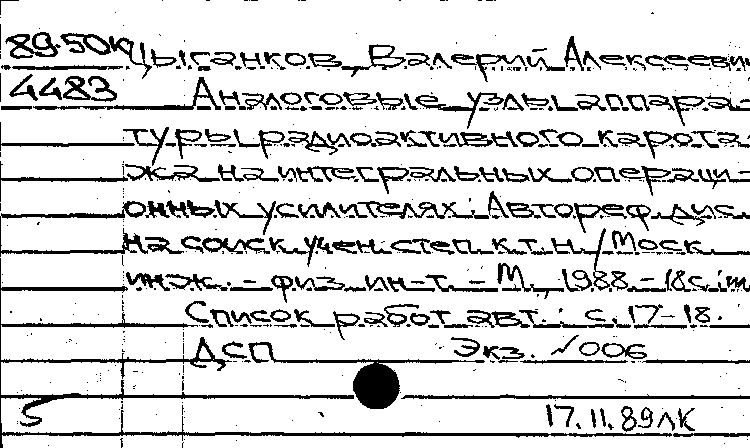 89-50к Цыганков, Валерий Алексеевич
4483 Аналоговые узлы аппара-
туры радиоактивного карота-
жа на интегральных операци-
онных усилителях: Автореф. дис.
на соиск. учен. степ. к.т.н. / Моск.
инж.-физ. ин-т. - М., 1988. - 18с.:
Список работ авт.: с. 17-18.
ДСП Экз. №006
5 17.11.89ЛК